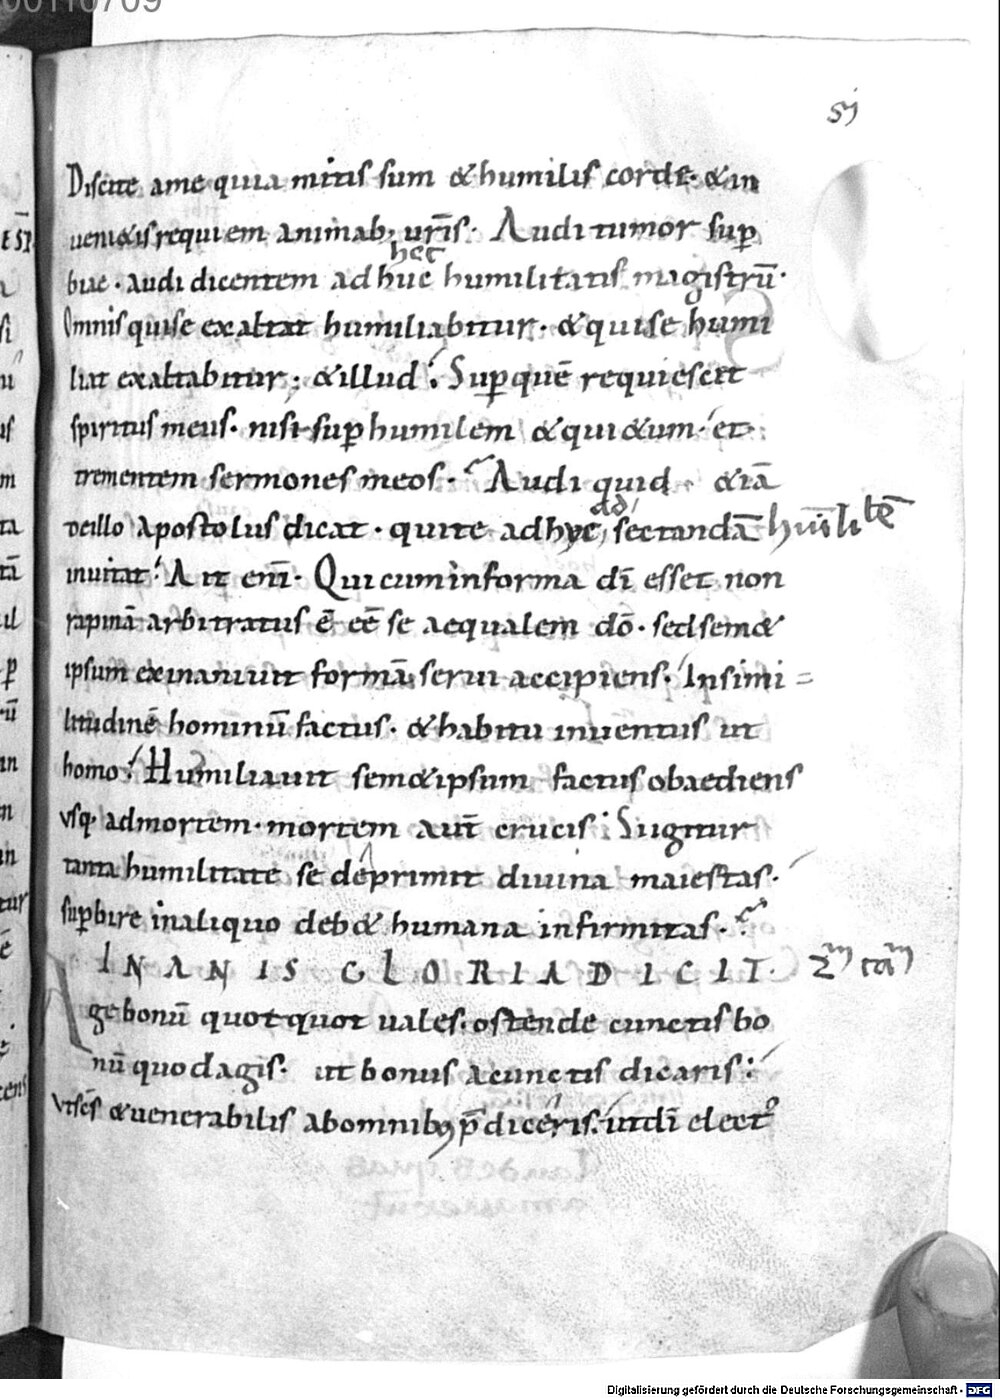 00110709
Discite ame quia mitis sum & humilis corde· & in
ueni&is requiem animab; urīs· Audi tumor sup̄
biae· audi dicentem ad huc humilitatis magistrū·
hec
Omnis qui se exaltat humiliabitur· & qui se humi
liat exaltabitur; & illud· Sup quē requiescit
spiritus meus· nisi sup humilem & qui&um· et
trementem sermones meos· Audi quid &iā
de illo apostolus dicat· qui te ad hyc sectandā humilitatē
ad
inuitat· Ait enī· Qui cum in forma dī esset non
rapinā arbitratus ē eē se aequalem dō· sed sem&
ipsum exinaniuit formā serui accipiens· In simi=
litudinē hominū factus· & habitu inuentus ut
homo· Humiliauit sem&ipsum factus obaediens
usq· ad mortem· mortem aūt crucis· Si igitur
tanta humilitate se deprimit diuina maiestas·
sup̄bire in aliquo deb& humana infirmitas·
INANIS GLORIA DICIT·
Age bonū quot quot uales· ostende cunctis bo
nū quod agis· ut bonus a cunctis dicaris·
Ut scs & uenerabilis ab omnibus p̄diceris· ut dī elect9
Digitalisierung gefördert durch die Deutsche Forschungsgemeinschaft - DFG